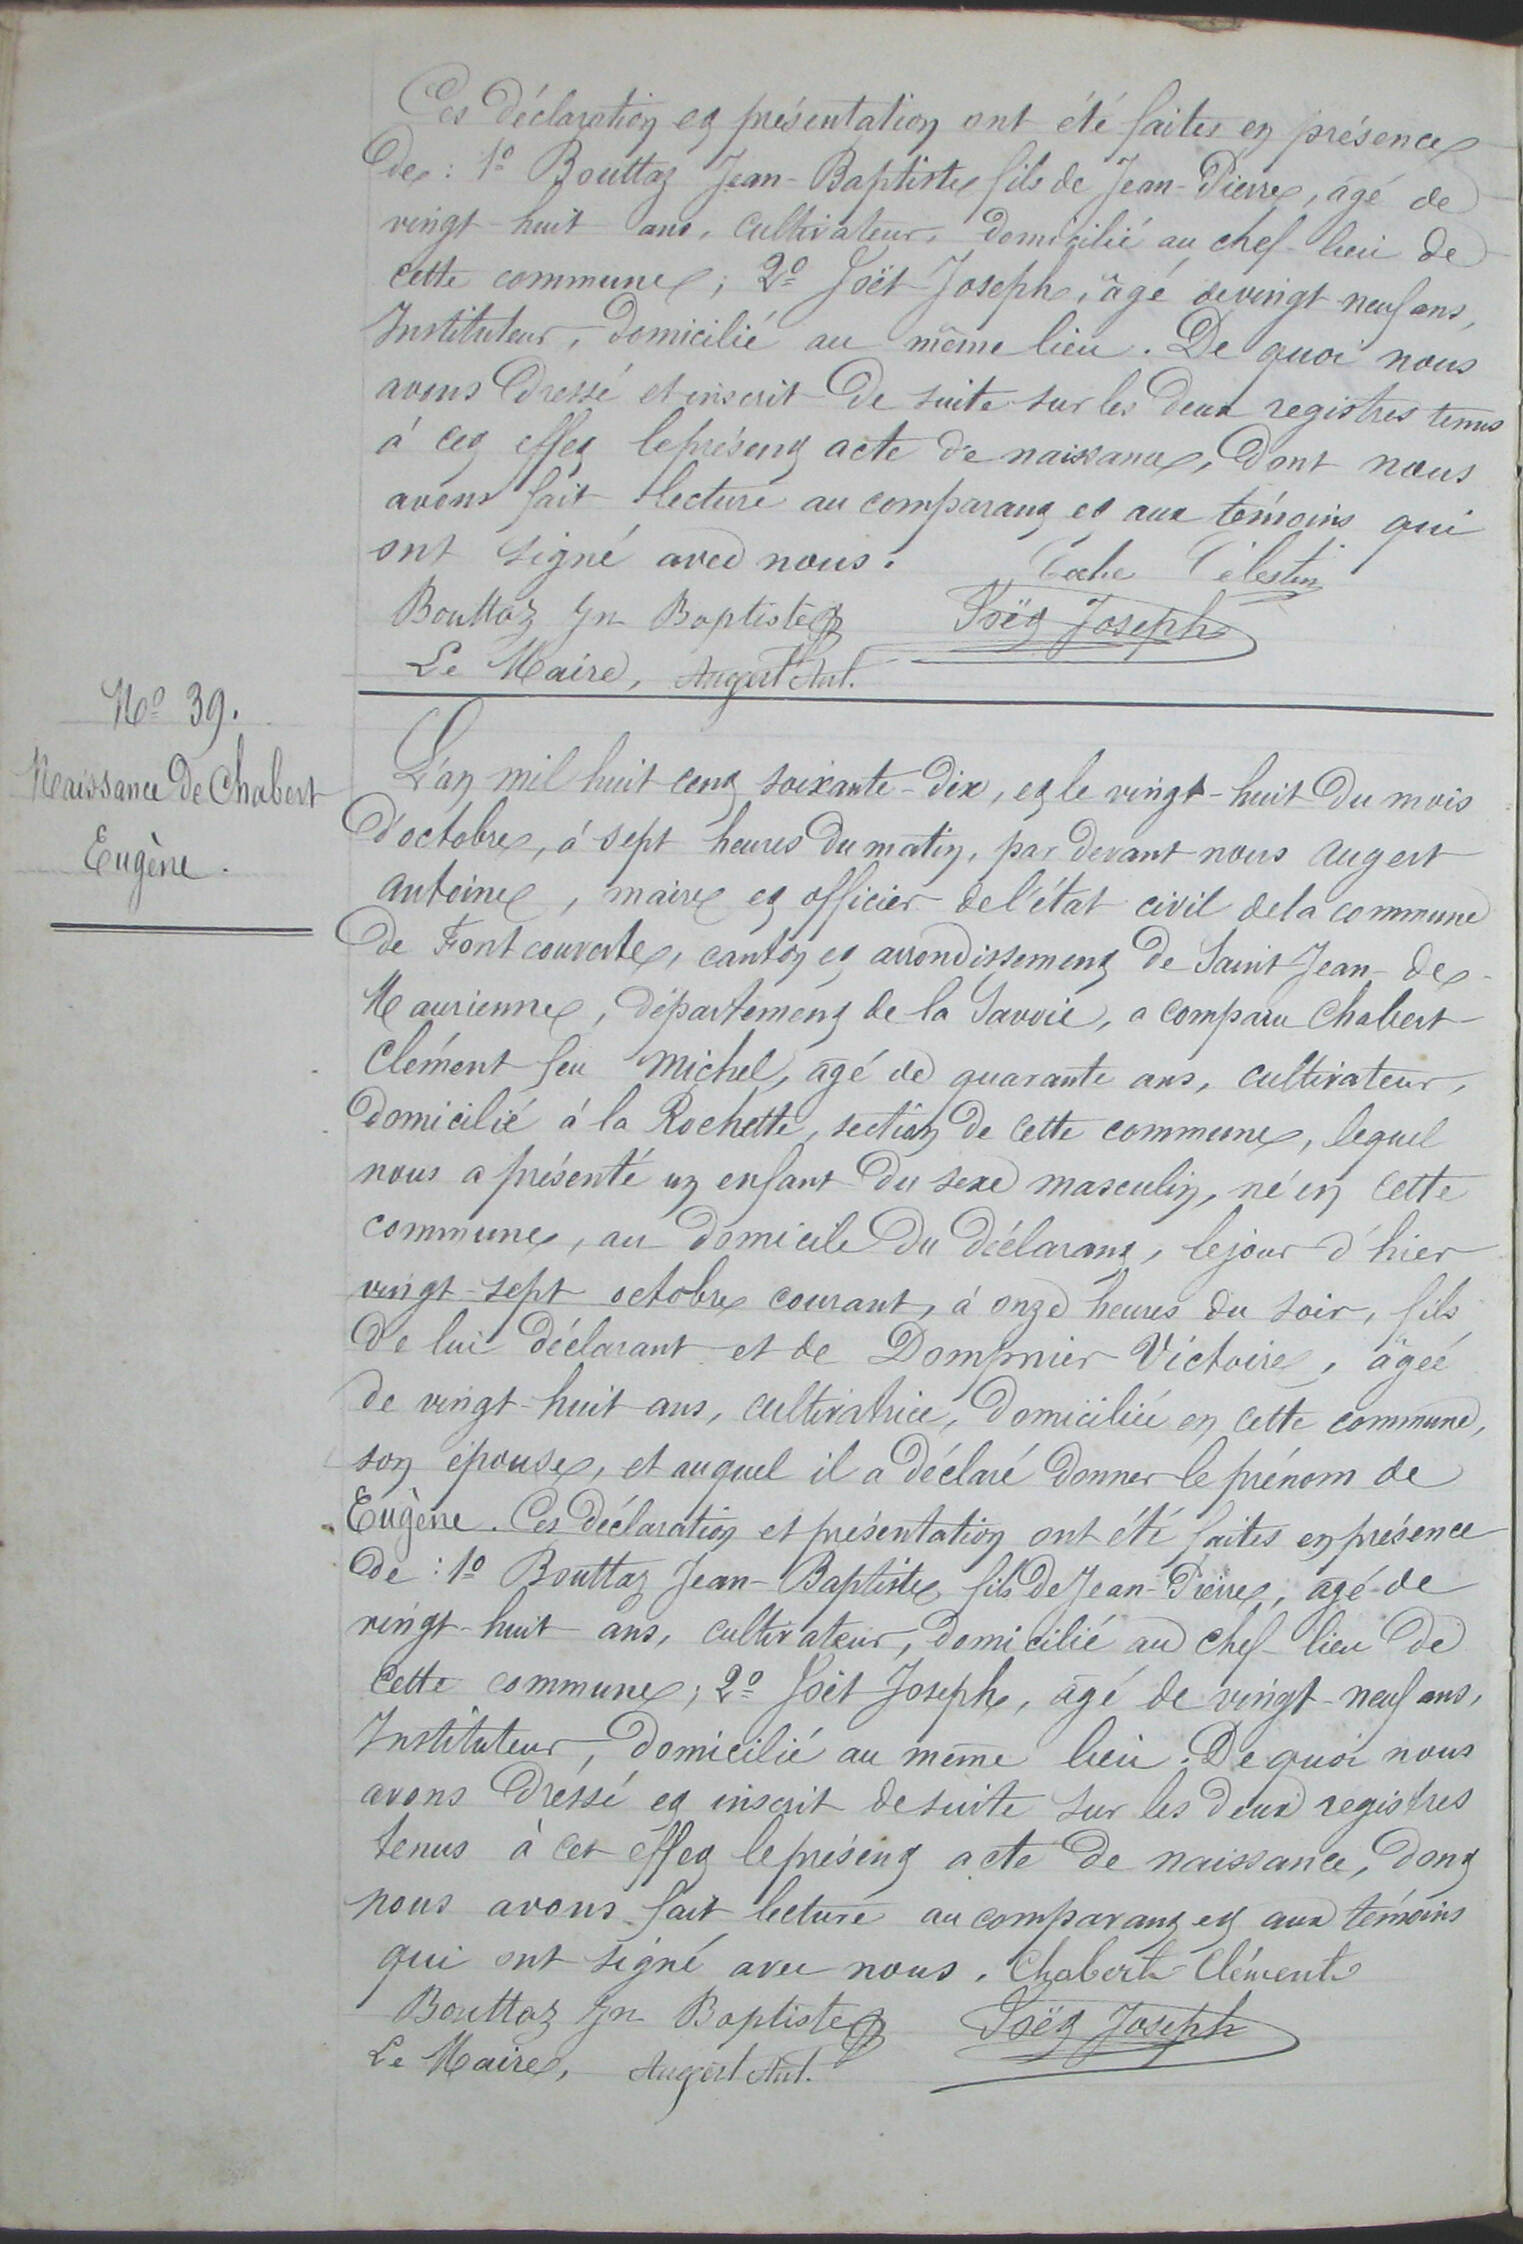 Ces déclaration et présentation ont été faites en présence
de : 1º Bouttaz Jean-Baptiste fils de Jean-Pierre, âgé de
vingt-huit ans, cultivateur, domicilié au chef-lieu de
cette commune ; 2º Joët Joseph, âgé de vingt-neuf ans,
Instituteur, domicilié au même lieu. De quoi nous
avons dressé et inscrit de suite sur les deux registres tenus
à cet effet le présent acte de naissance, dont nous
avons fait lecture au comparant et aux témoins qui
ont signé avec nous. Célestin
Bouttaz Jn Baptiste Joët Joseph
Le Maire, Augert Ant.
Nº 39.
Naissance de Chabert
Eugène.
L'an mil huit cent soixante-dix, et le vingt-huit du mois
d'octobre, à sept heures du matin, par devant nous Augert
Antoine, maire et officier de l'état civil de la commune
de Fontcouverte, canton et arrondissement de Saint-Jean-de-
Maurienne, département de la Savoie, a comparu Chabert
Clément feu Michel, âgé de quarante ans, cultivateur,
domicilié à la Rochette, section de cette commune, lequel
nous a présenté un enfant du sexe masculin, né en cette
commune, au domicile du déclarant, le jour d'hier
vingt-sept octobre courant, à onze heures du soir, fils
de lui déclarant et de Dompnier Victoire, âgée
de vingt-huit ans, cultivatrice, domiciliée en cette commune,
son épouse, et auquel il a déclaré donner le prénom de
Eugène. Ces déclaration et présentation ont été faites en présence
de : 1º Bouttaz Jean-Baptiste fils de Jean-Pierre, âgé de
vingt-huit ans, cultivateur, domicilié au chef-lieu de
cette commune ; 2º Joët Joseph, âgé de vingt-neuf ans,
Instituteur, domicilié au même lieu. De quoi nous
avons dressé et inscrit de suite sur les deux registres
tenus à cet effet le présent acte de naissance, dont
nous avons fait lecture au comparant et aux témoins
qui ont signé avec nous. Chabert Clément
Bouttaz Jn Baptiste Joët Joseph
Le Maire, Augert Ant.